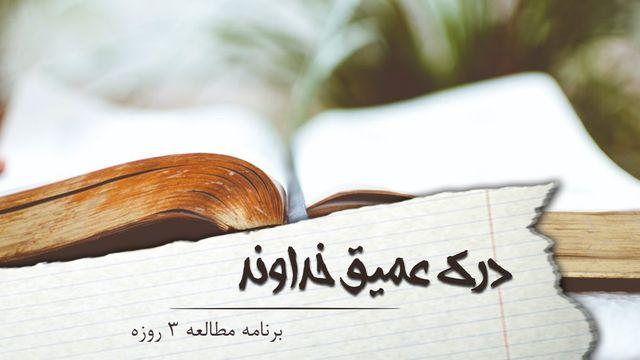 درک عمیق خداوند
برنامه مطالعه ۳ روزه